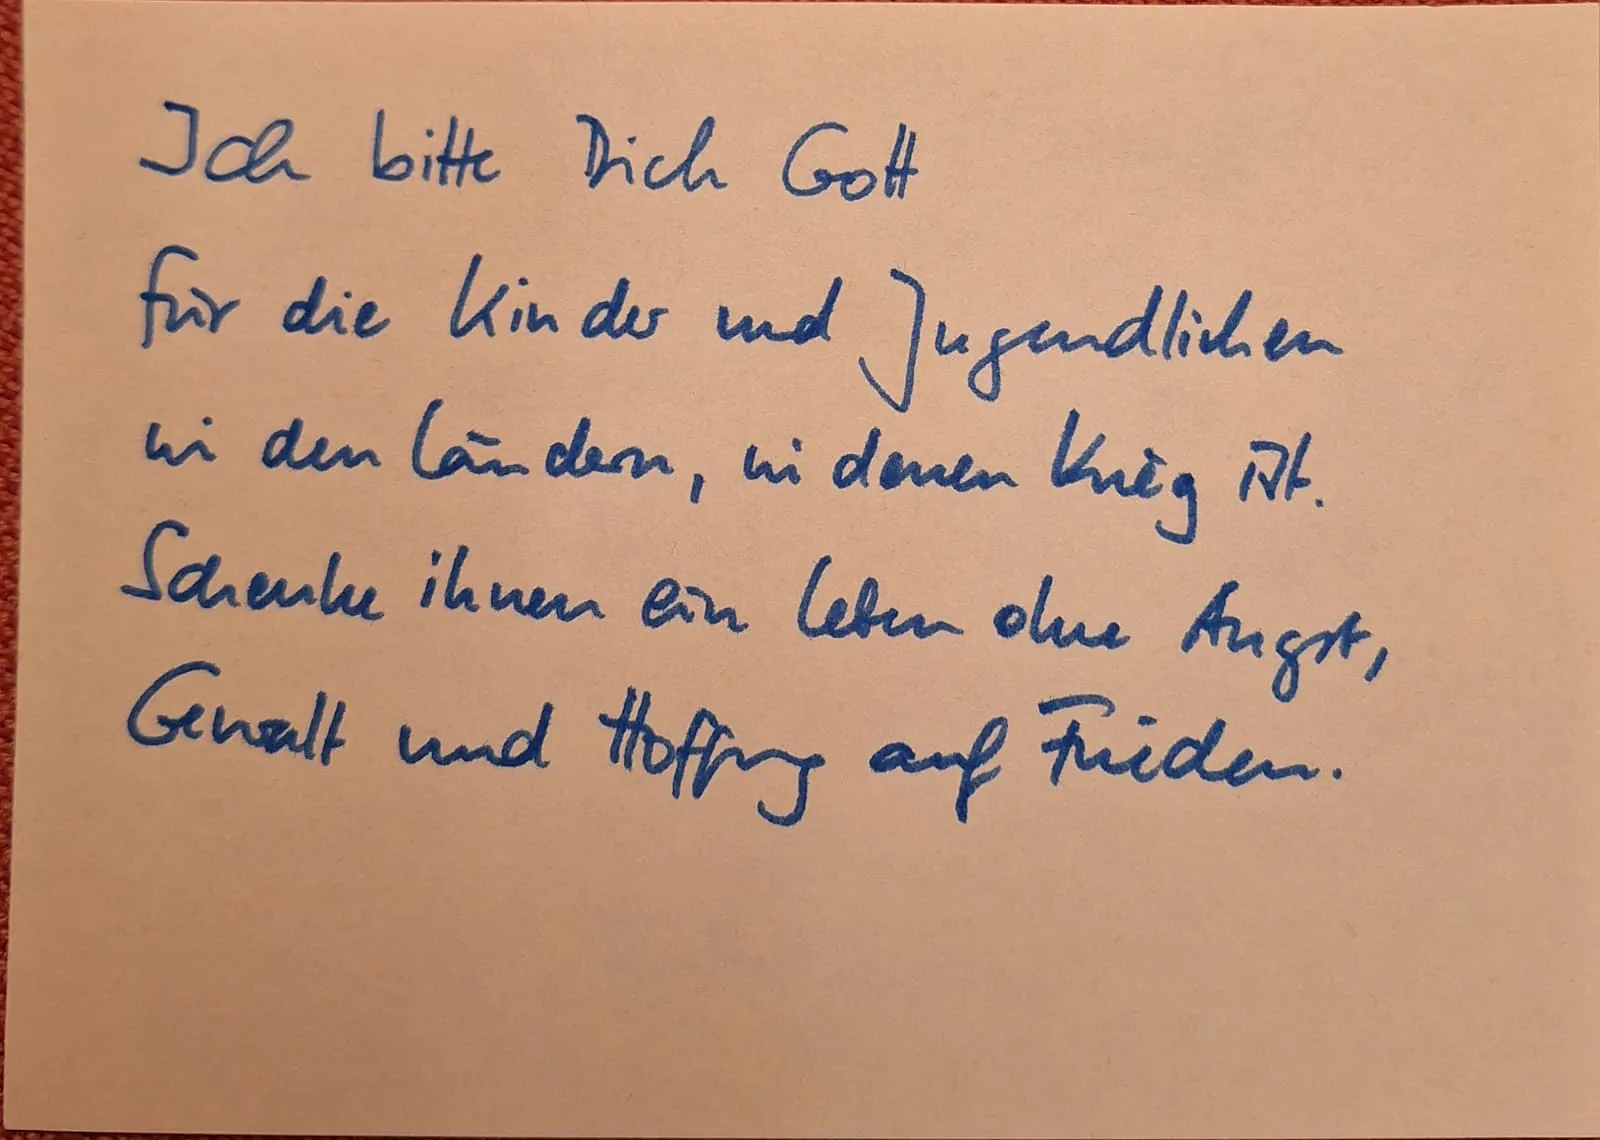 Ich bitte Dich Gott
für die Kinder und Jugendlichen
in den Ländern, in denen Krieg ist.
Schenke ihnen ein Leben ohne Angst,
Gewalt und Hoffnung auf Frieden.